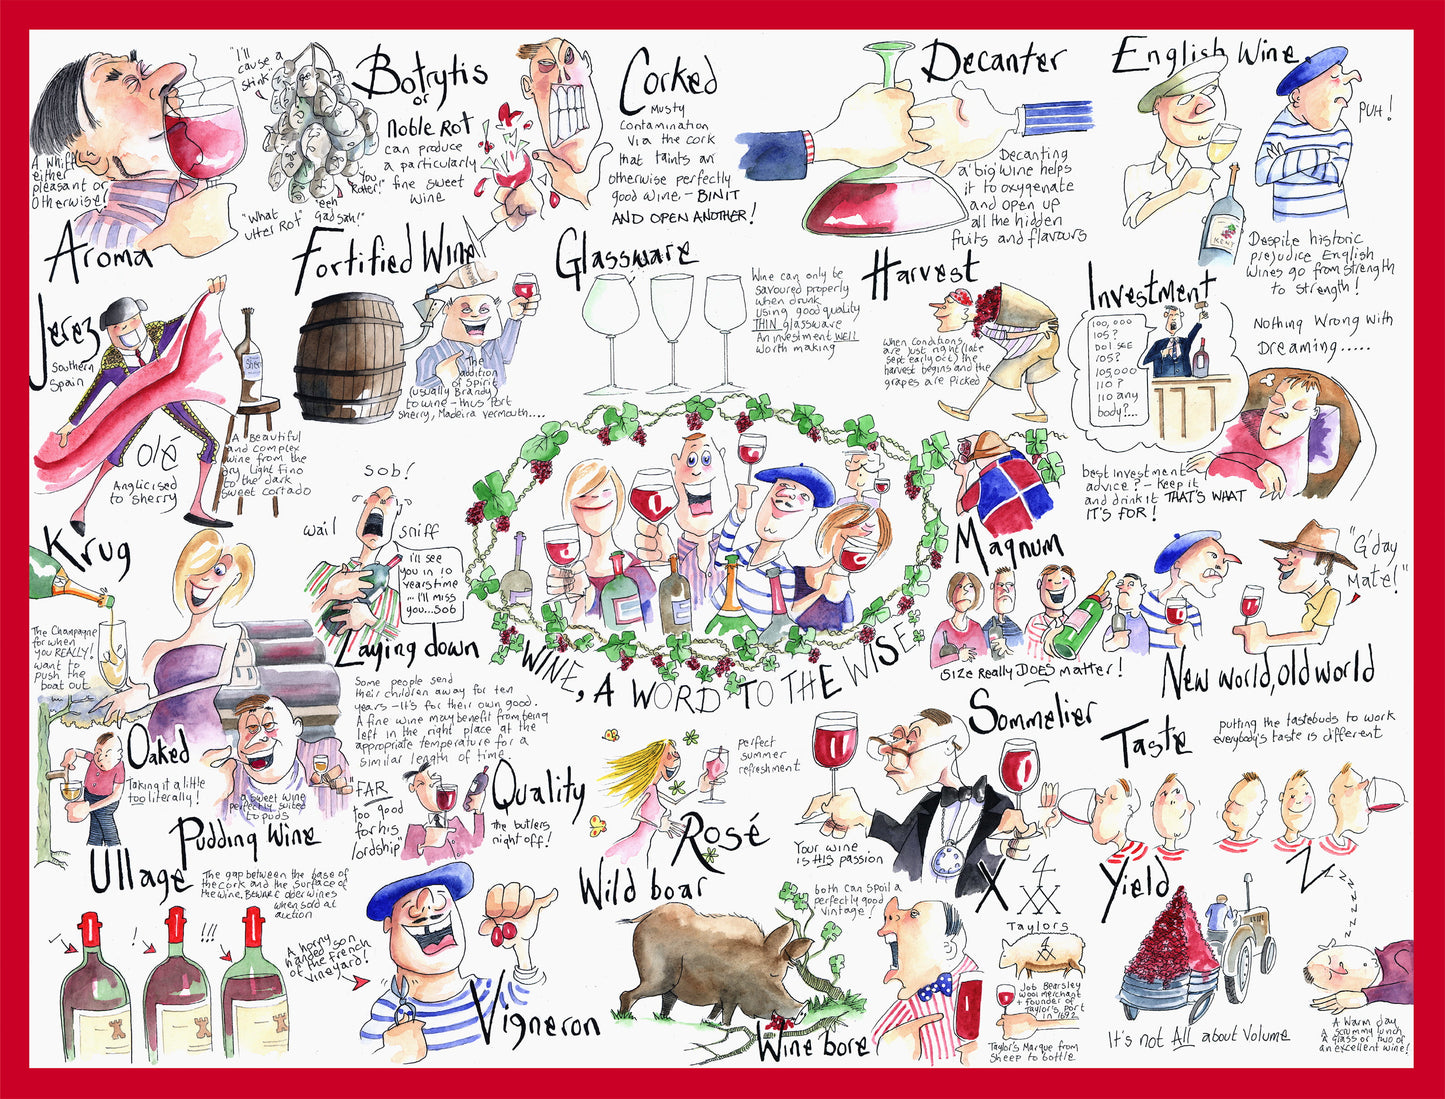 Aroma
A whiff
either
pleasant or
otherwise!
"I'll
cause a
stink"
"What
utter Rot"
"eeh
Gad sah!"
"You
Rotter!"
Botrytis
or
Noble Rot
can produce
a particularly
fine sweet
wine
Corked
Musty
contamination
via the cork
that taints an
otherwise perfectly
good wine, - BIN IT
AND OPEN ANOTHER!
Decanter
Decanting
a 'big' wine helps
it to oxygenate
and open up
all the hidden
fruits and flavours
English Wine
PUH!
KENT
Despite historic
prejudice English
Wines go from strength
to strength!
Jerez
Southern
Spain
Olé
Anglicised
to sherry
A Beautiful
and complex
wine from the
dry light fino
to the dark
sweet cortado
Fortified Wine
The
addition
of Spirit
(usually Brandy)
to wine - thus Port
Sherry, Madeira Vermouth....
Glassware
Wine can only be
savoured properly
when drunk
using good quality
THIN glassware
An investment WELL
worth making
Harvest
When conditions
are just right (late
Sept early Oct) the
harvest begins and the
grapes are picked
Investment
100,000
105?
do I see
105?
105,000
110?
110 any
body?...
Nothing Wrong with
Dreaming.....
best investment
advice? - Keep it
and drink it THAT'S WHAT
IT'S FOR!
Krug
The Champagne
for when
you REALLY!
want to
push the
boat out
sob!
wail
sniff
i'll see
you in 10
years time
... I'll miss
you...sob
Laying down
Some people send
their children away for ten
years - it's for their own good.
A fine wine may benefit from being
left in the right place at the
appropriate temperature for a
similar length of time.
WINE, A WORD TO THE WISE
Magnum
Size Really DOES matter!
"G'day
Mate!"
New world, Old world
Oaked
Taking it a little
too literally!
a sweet wine
perfectly suited
to puds
Pudding Wine
"FAR
too good
for his
lordship"
Quality
The butlers
night off!
Perfect
summer
refreshment
Rosé
Sommelier
Your wine
is HIS passion
Taste
putting the tastebuds to work
everybody's taste is different
Ullage
The gap between the base of
the cork and the surface of
the wine, BEWARE older wines
when sold at
auction
!
!!!
A horny
handed son
of the French
Vineyard!
Vigneron
Wild boar
both can spoil a
perfectly good
vintage!
Wine bore
X
4
XX
Taylors
4
XX
Job Bearsley
wool merchant
+ founder of
Taylor's Port
in 1692
Taylor's Marque from
sheep to bottle
Yield
It's not All about Volume
Z
zzzzzzz
A warm day
a scrummy lunch
a glass or two of
an excellent wine!